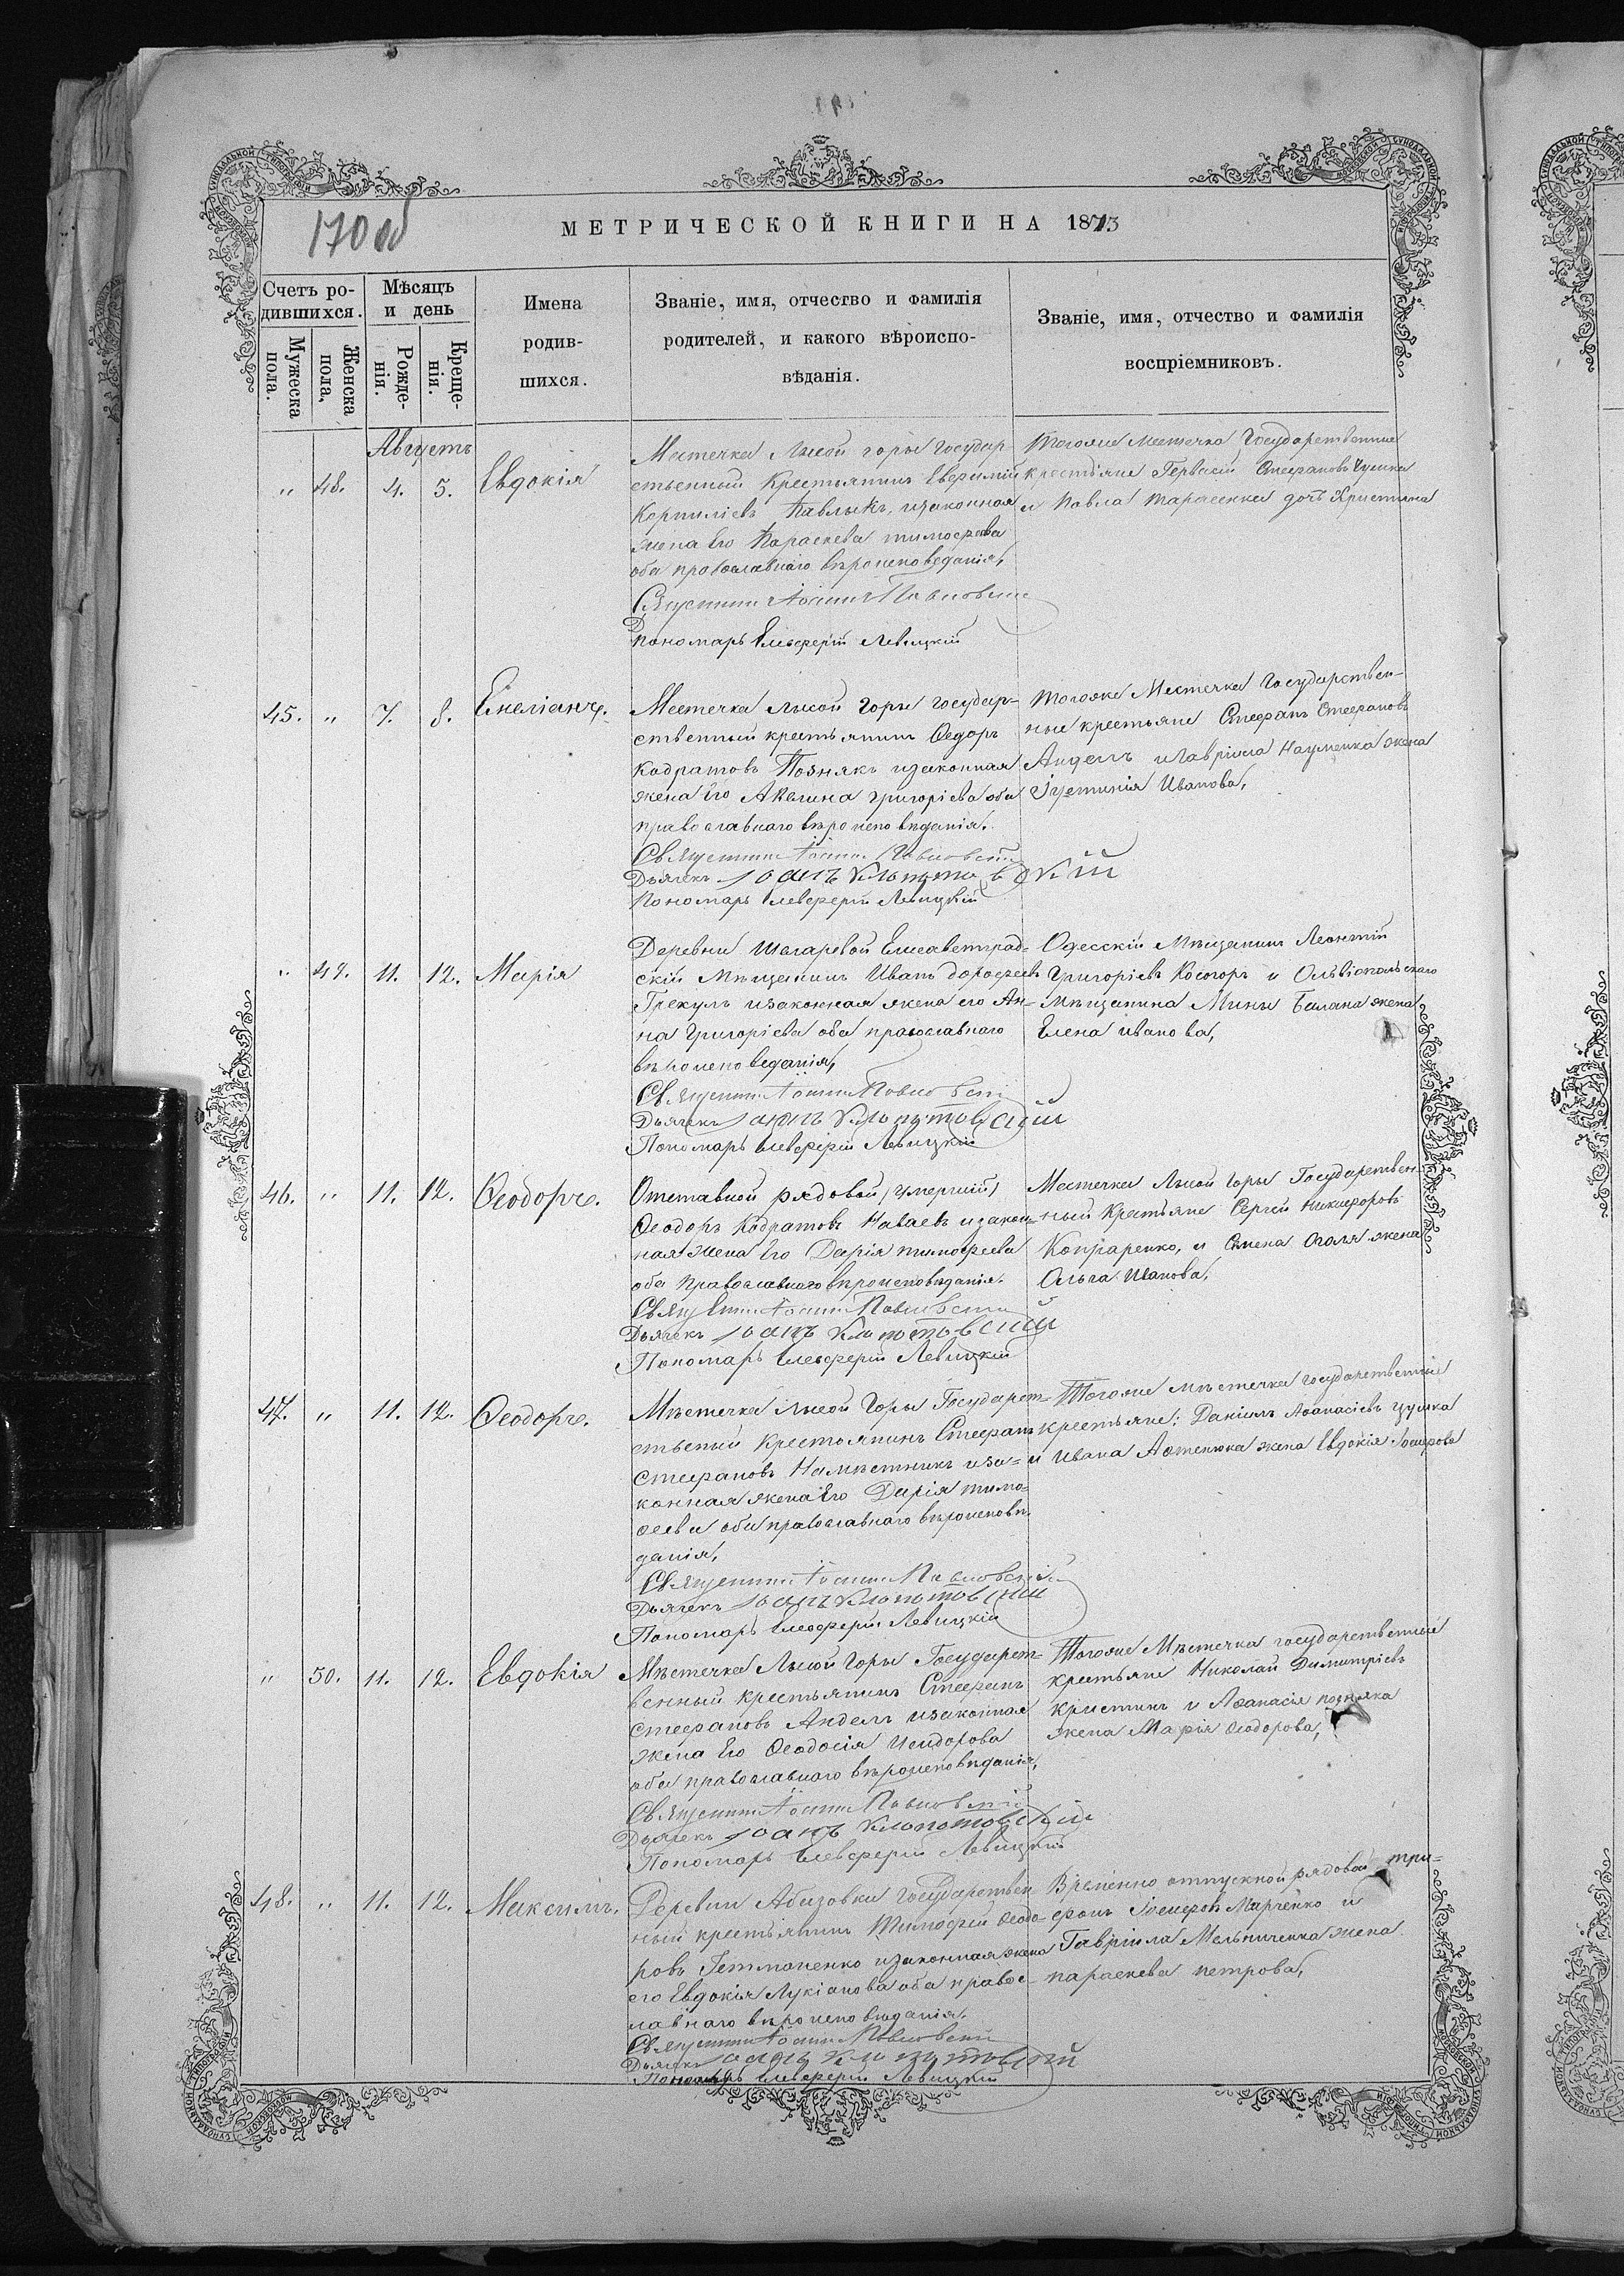 170 об
МЕТРИЧЕСКОЙ КНИГИ НА 1873
Счетъ ро-
дившихся.
Мужеска пола.
Женска пола,
Мѣсяцъ
и день
Рожде-
нія.
Креще-
нія.
Имена
родив-
шихся.
Званіе, имя, отчество и фамилія
родителей, и какого вѣроиспо-
вѣданія.
Званіе, имя, отчество и фамилія
воспріемниковъ.
Августъ
" 48. 4. 5. Евдокія
Местечка Лысой горы государ-
ственный Крестьянинъ Евфимій
Корниліевъ Павлыкъ, изаконная
жена Его Параскева тимофеева
оба православнаго вѣроисповеданія,
Священникъ Іоаннъ
Пономарь Елевферій Левицкій
Тогоже местечка Государственные
крестіяне Гервасій Стефановъ Цушка
и Павла Тарасенка дочь Христина
45. " 7. 8.
Местечка Лысой Горы государ-
ственный крестьянинъ Ѳедоръ
Кодратовъ Познякъ изаконная
жена Его Акилина григоріева оба
православнаго вѣроисповѣданія.
Священникъ Іоаннъ
Дьячекъ Іоанъ Клопотовскій
Пономарь Елевферій Левицкій
Тогоже Местечка Государствен-
ные крестьяне Стефанъ Стефановъ
Андель и Гавріила Науменка жена
Іустинія Иванова,
" 49. 11. 12. Марія
Деревни Шкаревой Елисаветград-
скій Мѣщанинъ Иванъ дорофеевъ
Грекулъ изаконная жена его Ан-
на Григоріева оба православнаго
вѣроисповеданія,
Священникъ Іоаннъ
Дьячекъ Іоанъ Клопотовскій
Пономарь Елевферій Левицкій
Одесскій Мѣщанинъ Леонтій
Григоріевъ Косогоръ и Ольвіопольскаго
Мѣщанина Мины Балана жена
Елена иванова,
46. " 11. 12. Ѳеодоръ.
Отставной рядовой (умершій)
Ѳеодоръ Кодратовъ Наваевъ изакон-
ная жена Его Дарія тимофеева
оба Православнаго вѣроисповѣданія.
Священникъ Іоаннъ
Дьячекъ Іоанъ Клопотовскій
Пономарь Елевферій Левицкій
Местечка Лысой Горы Государствен-
ный Крестьяне Сергій Никифоровъ
жена
Ольга Иванова,
47. " 11. 12. Ѳеодоръ.
Мѣстечка Лысой Горы Государст-
ственный Крестоянинъ Стефанъ
Стефановъ Намѣстникъ иза-
конная жена Его Дарія тимо-
ѳеева оба православнаго вѣроисповѣ-
данія,
Священникъ Іоаннъ
Дьячекъ Іоанъ Клопотовскій
Пономарь Елевферій Левицкій
Тогоже мѣстечка государственные
крестьяне: Даніилъ Аѳанасіевъ Цушка
и Ивана жена Евдокія
" 50. 11. 12. Евдокія
Мѣстечка Лысой Горы Государст-
венный крестьянинъ Стефанъ
Стефановъ Андель изаконная
жена Его Ѳеодосія Исидорова
оба православнаго вѣроисповѣданія,
Священникъ Іоаннъ
Дьячекъ Іоанъ Клопотовскій
Пономарь Елевферій Левицкій
Тогоже Мѣстечка государственные
крестьяне Николай Димитріевъ
и Аѳанасія позняка
жена Марія Ѳеодорова,
48. " 11. 12. Максимъ.
Деревни Абизовки государствен
ный крестьянинъ Тимофей Ѳеодо-
ровъ Гетманенко изаконная жена
его Евдокія Лукіанова оба правос-
лавнаго вѣроисповѣданія.
Священникъ Іоаннъ
Дьячекъ Іоанъ Клопотовскій
Пономарь Елевферій Левицкій
Временно отпускной рядовой три-
фонъ Іосифовъ Марченко и
Гавріила Мельниченка жена
параскева петрова,